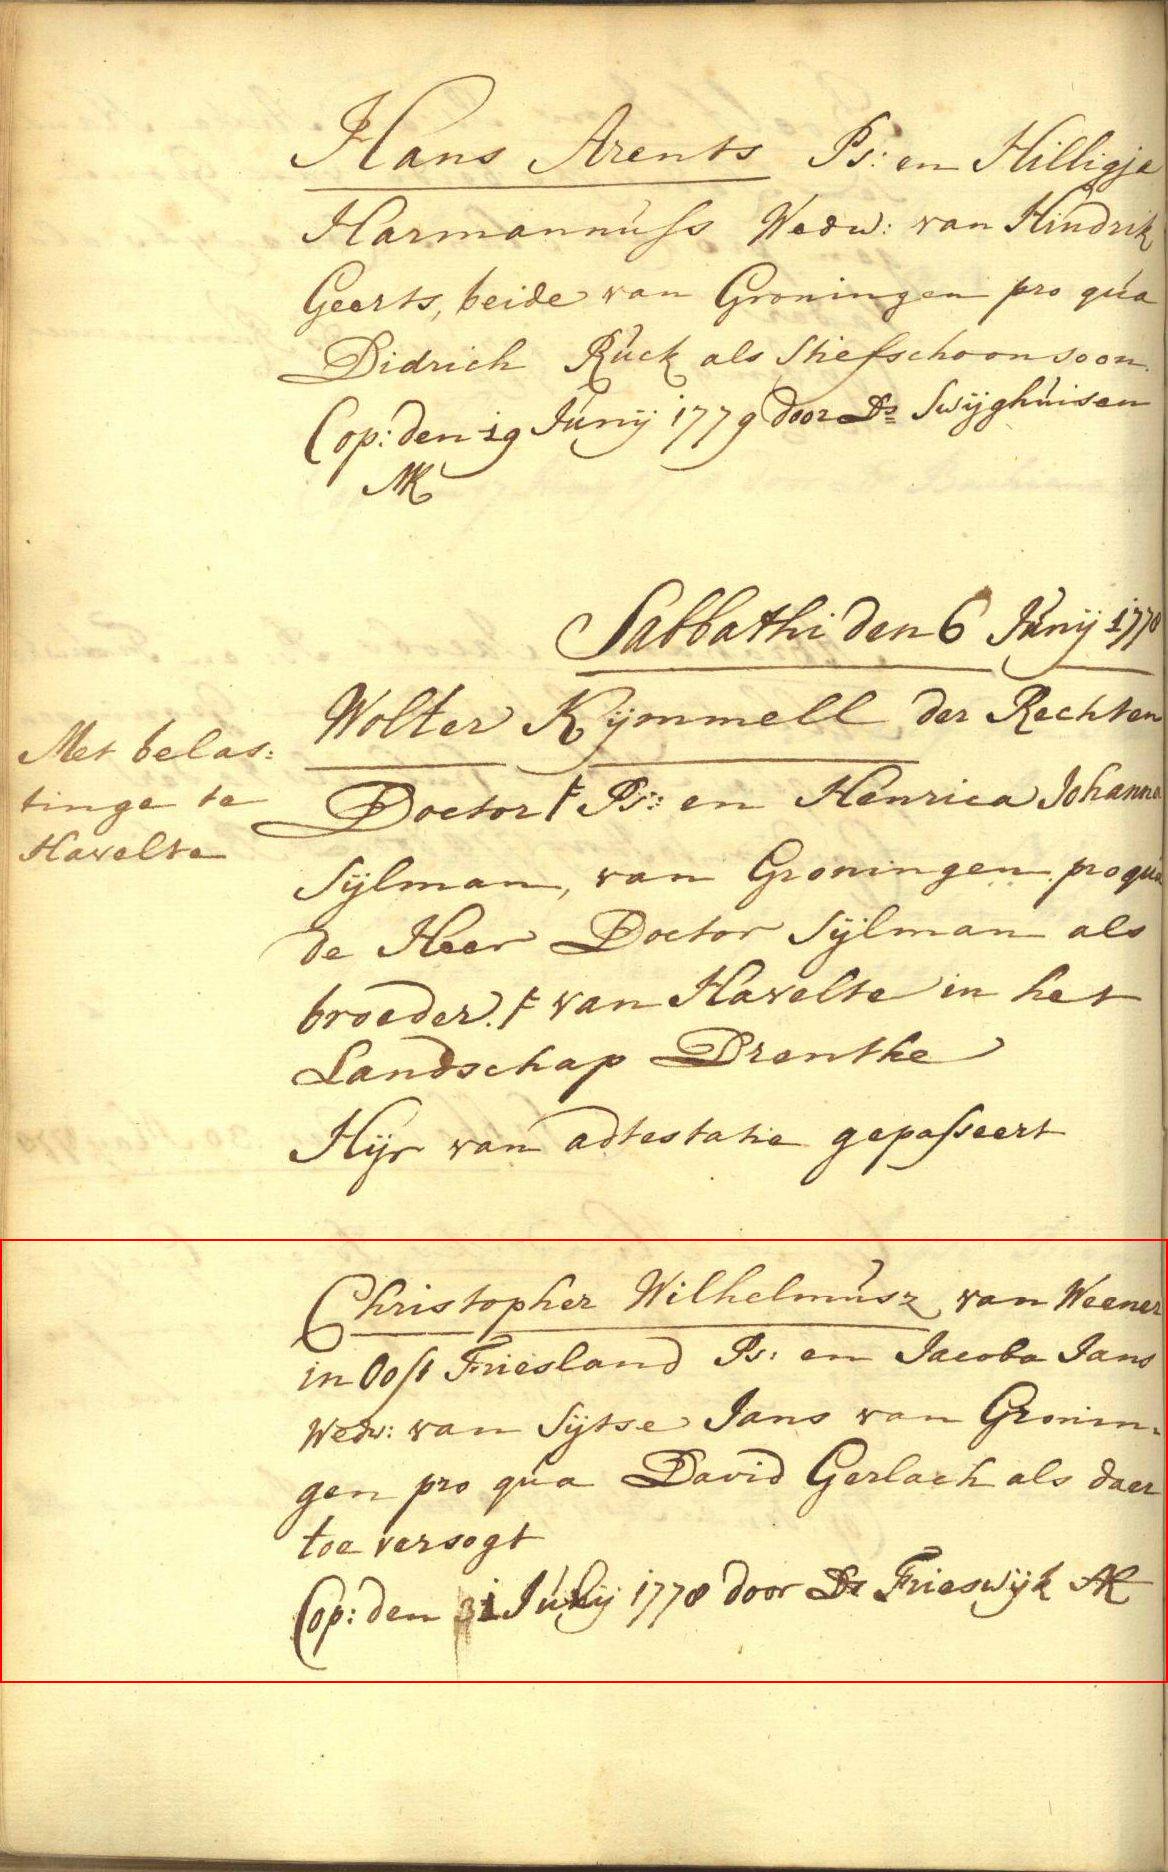 Hans Arents Ps: en Hilligje
Harmannuss Wedw: van Hindrik
Geerts, beide van Groningen pro qua
Didrich Ruck als Stiefschoonsoon.
Cop: den 19 Junij 1779 door Ds Swijghuisen
MK
Sabbathi den 6 Junij 1778
Wolter Kijmmell der Rechten
Met belas:
tinge te
Havelte
Doctor ⱡ Ps: en Henrica Johanna
Sijlman, van Groningen pro qua
de Heer Doctor Sijlman als
broeder. ⱡ van Havelte in het
Landschap Drenthe
Hijr van adtestatie gepasseert
Christopher Wilhelmusz van Weener
in Oost Friesland Ps: en Jacoba Jans
Wedw: van Sijtse Jans van Gronin=
gen pro qua David Gerlach als daer
toe versogt
Cop: den 31 Julij 1778 door Ds Frieswijk AK